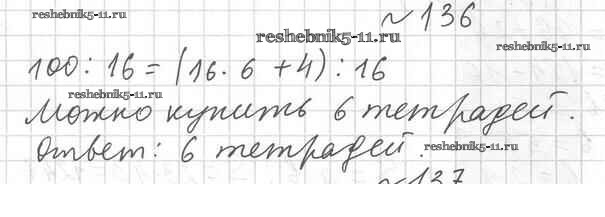 reshebnik5-11.ru
№136
reshebnik5-11.ru
reshebnik5-11.ru
100 : 16 = (16 · 6 + 4) : 16
reshebnik5-11.ru
Можно купить 6 тетрадей.
Ответ: 6 тетрадей.
reshebnik5-11.ru
№137
reshebnik5-11.ru